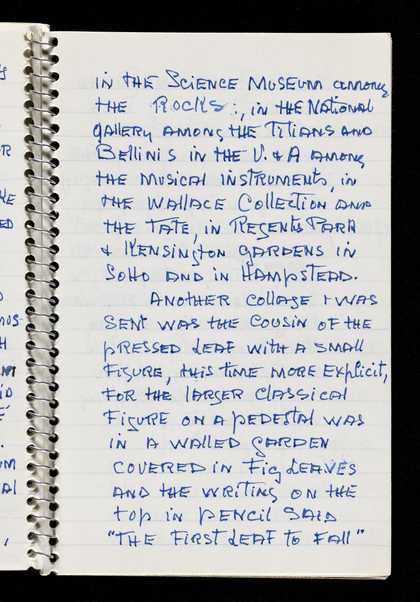 in THE SCIENCE MUSEUM among
THE ROCKS:, in THE NATIONAL
gallery AMONG THE TITIANS AND
BELLINIS in THE V. & A AMONG
THE MUSICAL INSTRUMENTS, in
THE WALLACE COLLECTION AND
THE TATE, in REGENTS PARK
& KENSINGTON GARDENS IN
SOHO AND IN HAMPSTEAD.
ANOTHER COLLAGE I WAS
SENT WAS THE COUSIN OF THE
PRESSED LEAF WITH A SMALL
FIGURE, THIS TIME MORE EXPLICIT,
FOR THE LARGER CLASSICAL
FIGURE ON A PEDESTAL WAS
IN A WALLED GARDEN
COVERED IN FIG LEAVES
AND THE WRITING ON THE
TOP IN PENCIL SAID
"THE FIRST LEAF TO FALL"